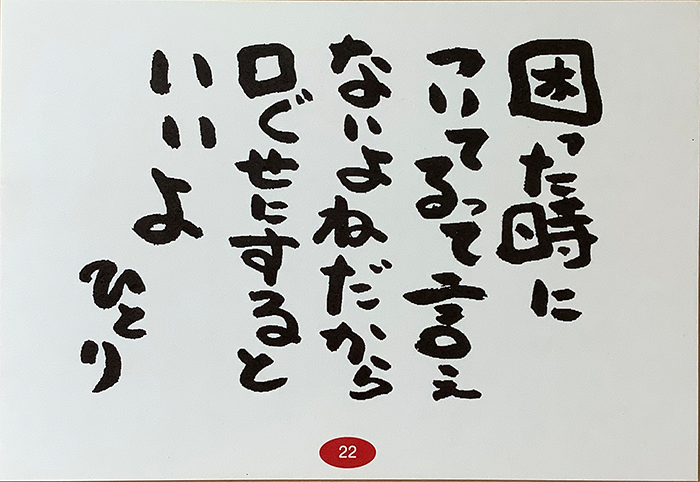 困った時に
ついてるって言え
ないよねだから
口ぐせにすると
いいよ
ひとり
22